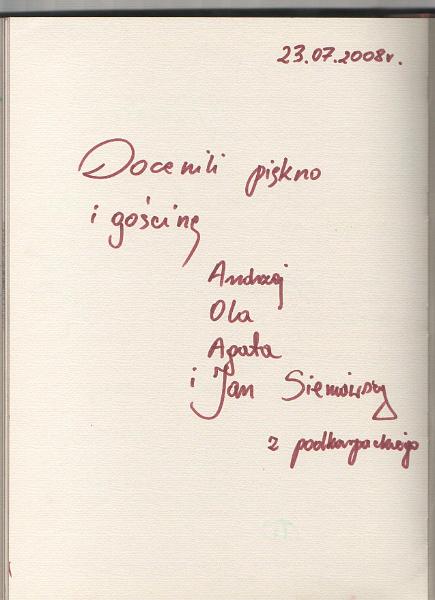 23.07.2008r.
Docenili piękno
i gościnę
Andrzej
Ola
Agata
i Jan
z podkarpackiego